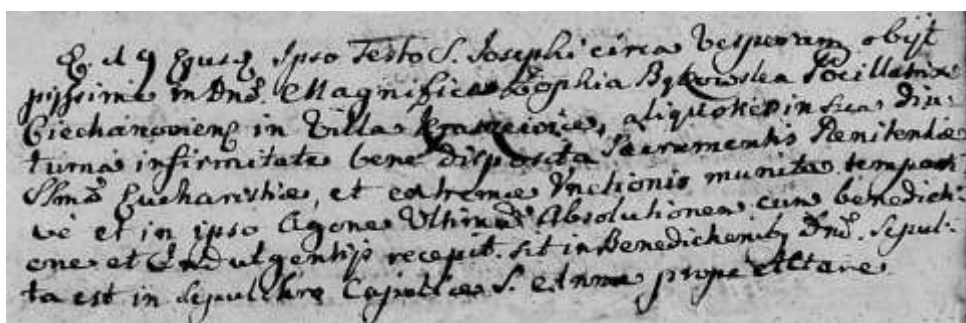 Ipso Festo S. Josephi circa Vesperam obijt
pijssime in Dnō. Magnifica Zophia Bąkowska Pocillatrix
Ciechanovien̄ in Villa Kraszeiwice, aliquoties in sua diu
turna infirmitate bene disposita Sacramentis Penitentiæ
SSmæ Eucharistiæ, et extremæ Vnctionis munita tempesti
vè et in ipso Agone Ultimā Absolutionem cum benedicti
one et Indulgentijs recepit. sit in Benedictionibq Dnō. Sepul-
ta est in Sepulchro Capellæ S. Annæ prope Altare